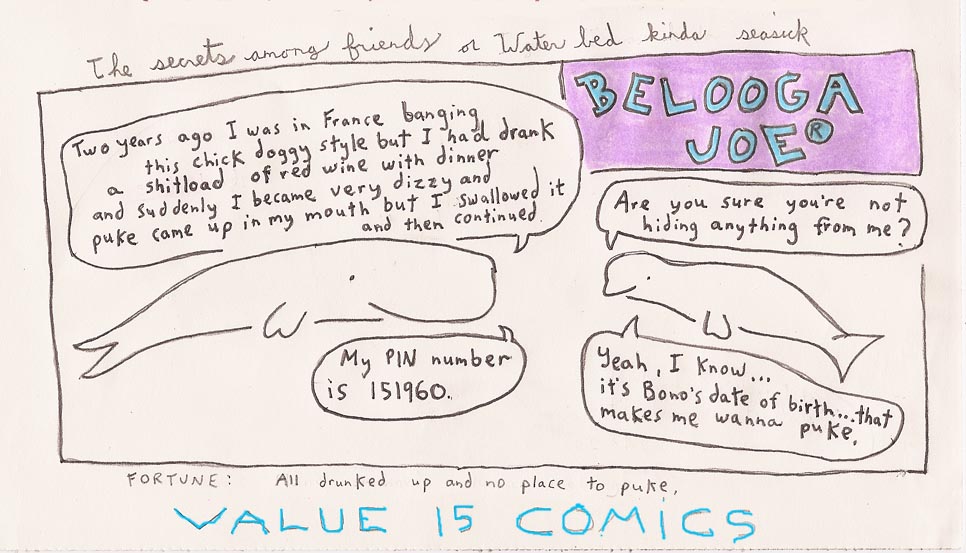 The secrets among friends or Water bed kinda seasick
BELOOGA
JOE®
Two years ago I was in France banging
this chick doggy style but I had drank
a shitload of red wine with dinner
and suddenly I became very dizzy and
puke came up in my mouth but I swallowed it
and then continued.
Are you sure you're not
hiding anything from me?
My PIN number
is 151960.
Yeah, I know...
it's Bono's date of birth...that
makes me wanna puke.
FORTUNE: All drunked up and no place to puke.
VALUE 15 COMICS